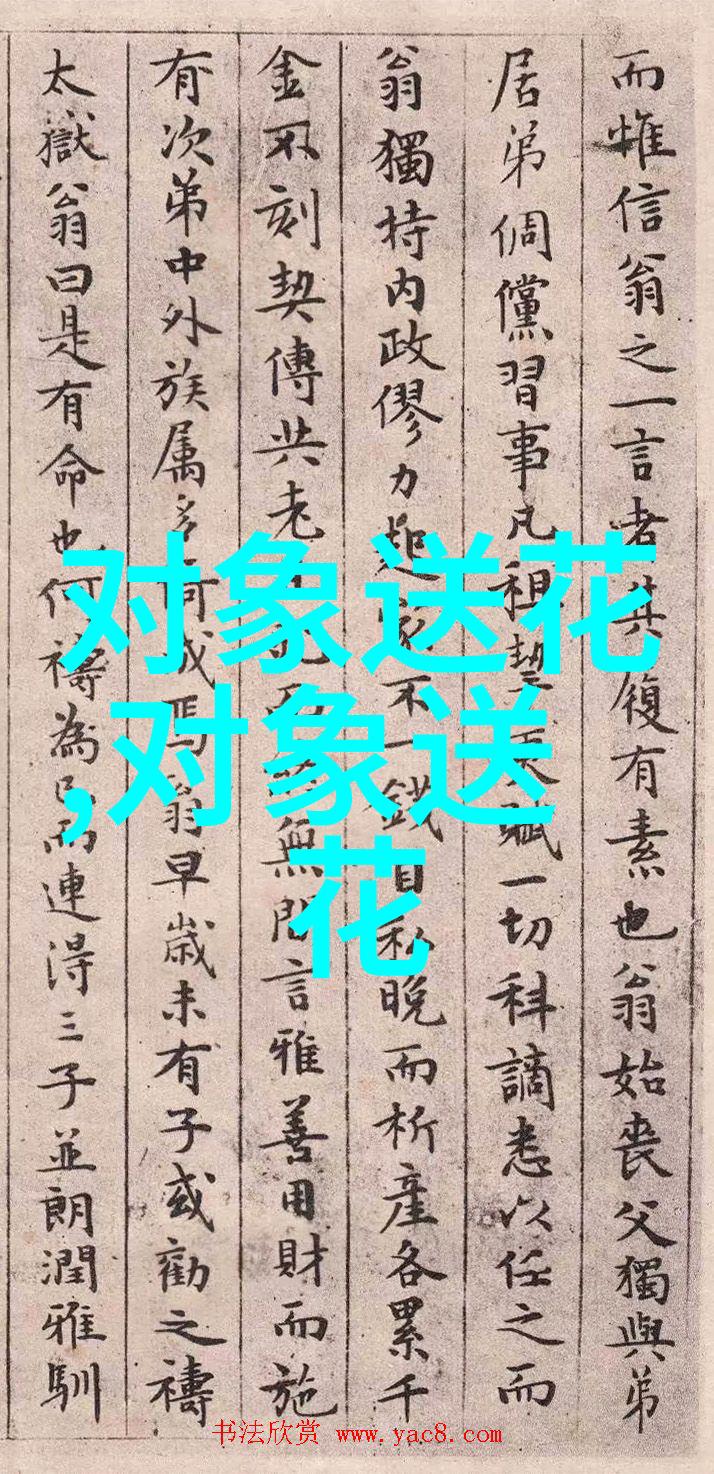 而惟信翁之一言者其履有素也翁始喪父獨與弟
居弟倜儻習事凡租挈天賦一切科謫悉以任之而
翁獨持内政僇力起家不一錢自私晚而析産各累千
金不刻契傳共老而無間言雅善用財而施
有次第中外族属多有成焉翁早歲未有子或勸之禱
太嶽翁曰是有命也何禱為已而連得三子並朗潤雅馴
对象送花
,对象送
花
书法欣赏 www.yac8.com